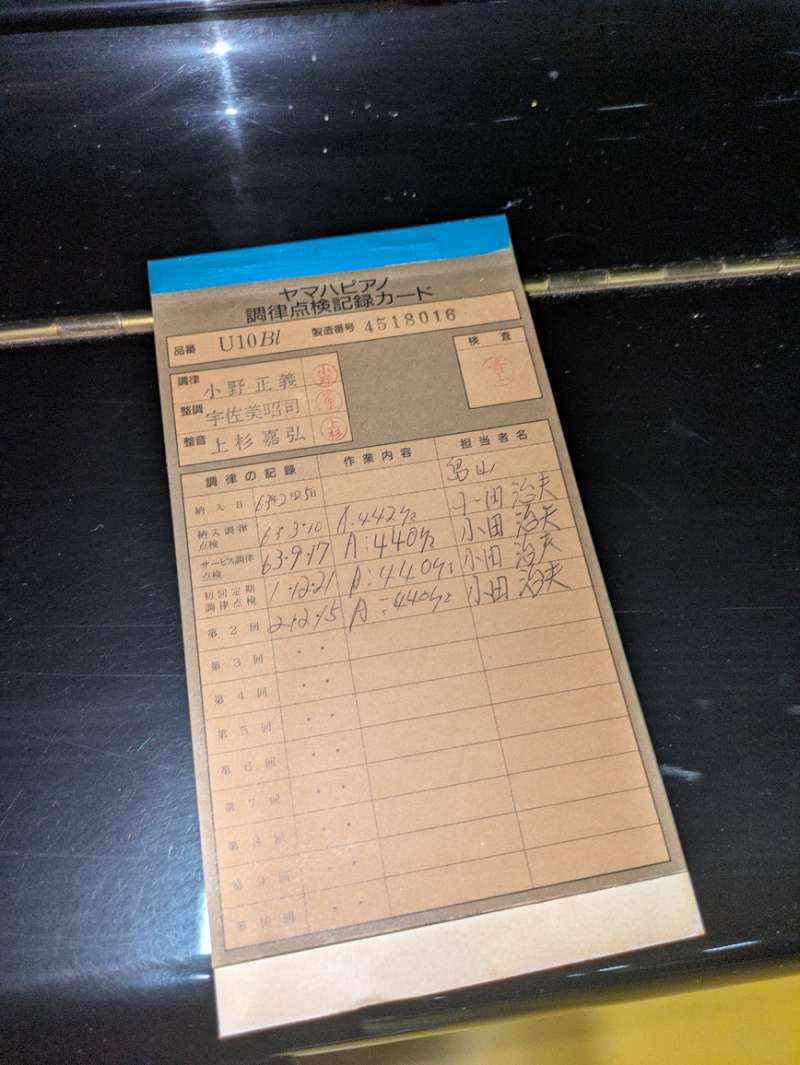 ヤマハピアノ
調律点検記録カード
品番 U10Bl 製造番号 4518016
検査
調律 小野正義 小野
整調 宇佐美昭司
整音 上杉嘉弘 上杉
調律の記録 作業内容 担当者名
納入日 63年2月25日 畠山
納入調律点検 63・3・10 A:442Hz 小田治夫
サービス調律点検 63・9・17 A:440Hz 小田治夫
初回定期調律点検 1・12・21 A:440Hz 小田治夫
第2回 2・12・15 A:440Hz 小田治夫
第3回 ・ ・
第4回 ・ ・
第5回 ・ ・
第6回 ・ ・
第7回 ・ ・
第8回 ・ ・
第9回 ・ ・
第10回 ・ ・